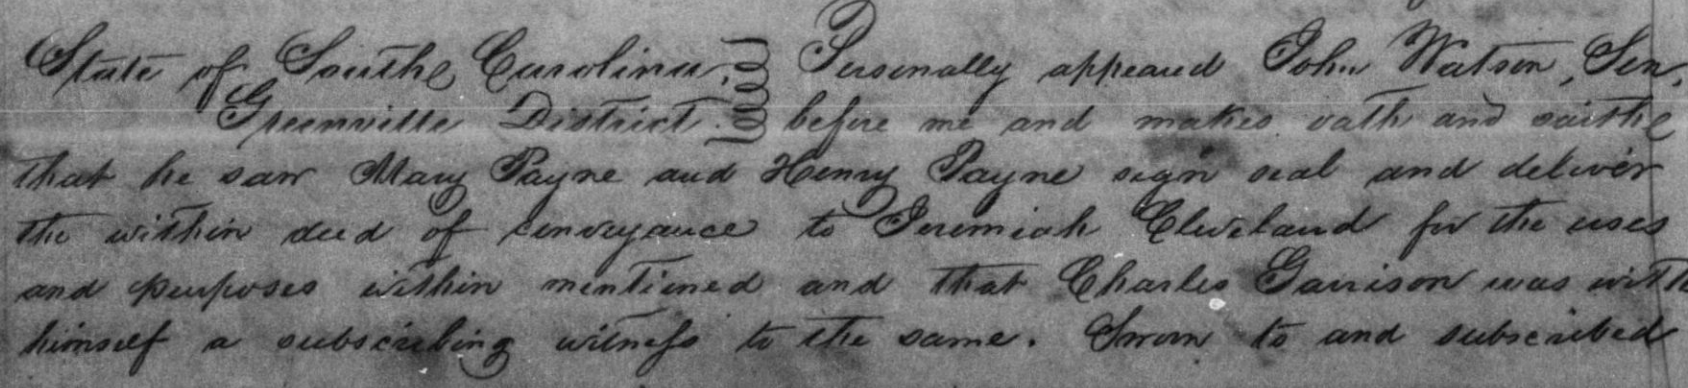 State of South Carolina, Personally appeared John Watson, Sen,
Greenville District. before me and makes oath and saith
that he saw Mary Payne and Henry Payne sign seal and deliver
the within deed of conveyance to Jeremiah Cleveland for the uses
and purposes within mentioned and that Charles Garrison was with
himself a subscribing witness to the same. Sworn to and subscribed